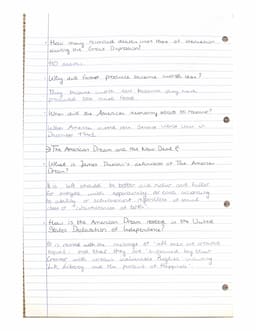 · How many recorded deaths were there of starvation
during the Great Depression?
110 deaths.
· Why did farmers produce become worth less?
They became worth less because they have
produced too much food.
· When did the American economy start to recover?
When America joined World War in
December 1941.
→ The American Dream and the New Deal
· What is James Truslow's definition of The American
Dream?
It is life should be better and richer and fuller
for everyone with opportunity for each according
to ability or achievement regardless of social
class or circumstances of birth.
· How is the American Dream rooted in the United
States Declaration of Independence?
It is rooted with the message of "all men are created
equal" and that they are endowed by their
Creator with certain inalienable Rights including
Life, Liberty and the pursuit of Happiness.